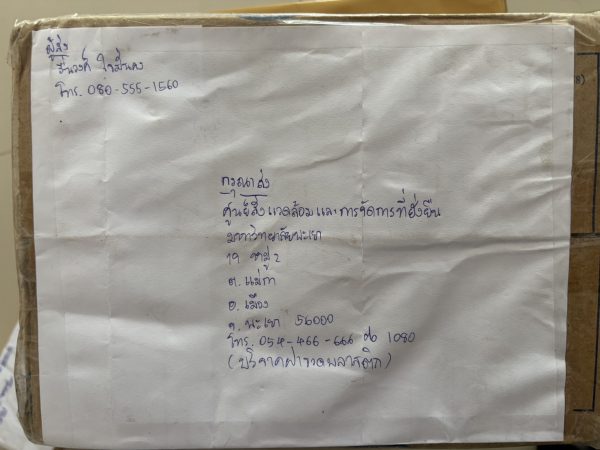 ผู้ส่ง
โทร. 080-555-1560
กรุณาส่ง
ศูนย์สิ่งแวดล้อมและการจัดการที่ยั่งยืน
มหาวิทยาลัยพะเยา
19 หมู่ 2
ต. แม่กา
อ. เมือง
จ. พะเยา 56000
โทร. 054-466-666 ต่อ 1080
(บริจาคฝาขวดพลาสติก)